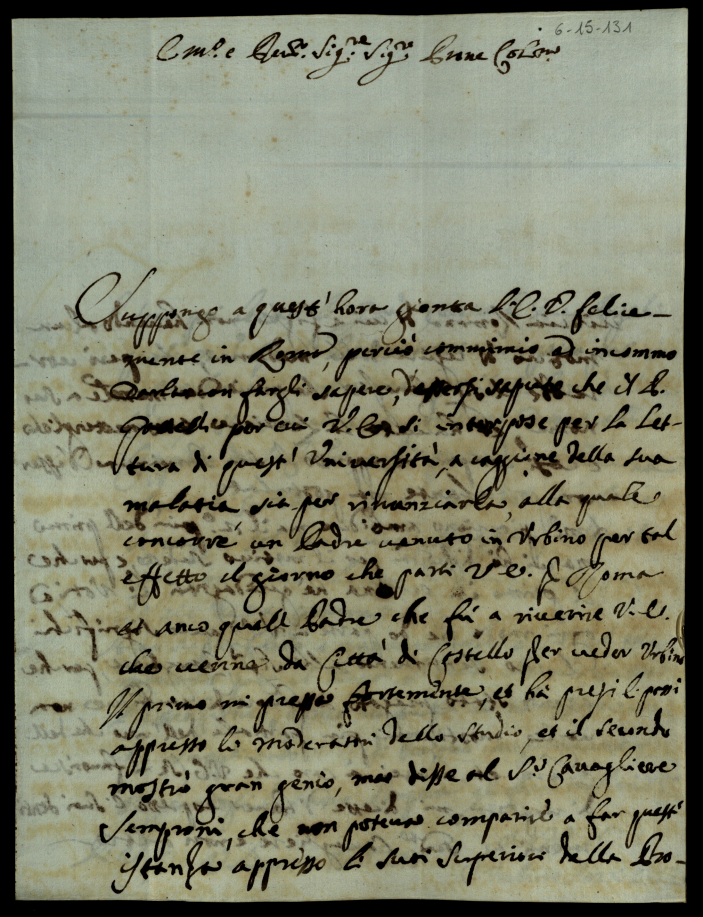 6-15-131
e Rev.mo Sig.re Sig.re Prone Colon.mo
Suppongo a quest' hora gionta V.E. felice-
mente in Roma, perciò
fargli sapere, che il P.
per cui V.E. si interpose per la Let-
tura di quest' Università, a caggione della sua
malatia sia per rinunziarla, alla quale
concorre un Padre venuto in Urbino per tal
effetto il giorno che partì V.E. p Roma
et anco quell Padre che fù a riverire V.E.
che venne da Città di Castello per veder Urbino
Il primo mi preme fortemente, et hà presi li passi
appresso li moderatori dello studio, et il secondo
mostrò gran genio, mà disse al S.r Cavagliere
Semproni, che non poteva comparire a far quest'
istanza appresso li suoi superiori della Pro-